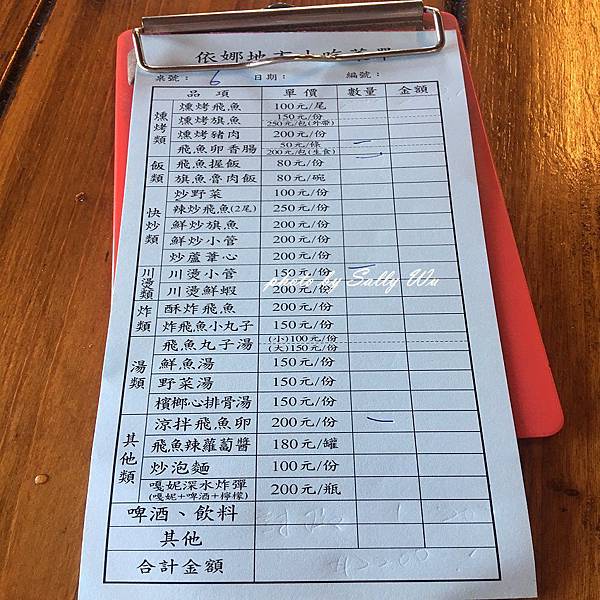 依娜地方小吃菜單
桌號： 6 日期： 編號：
品項 單價 數量 金額
燻烤類
燻烤飛魚 100元/尾
燻烤旗魚 150元/份
250元/包(外帶)
燻烤豬肉 200元/份
飛魚卵香腸 50元/條 一
200元/包(生食)
飯類
飛魚握飯 80元/份 二
旗魚魯肉飯 80元/碗
快炒類
炒野菜 100元/份
辣炒飛魚(2尾) 250元/份
鮮炒旗魚 200元/份
鮮炒小管 200元/份
炒蘆葦心 200元/份
川燙類
川燙小管 150元/份 一
川燙鮮蝦 200元/份
photo by Sally Wu
炸類
酥炸飛魚 200元/份
炸飛魚小丸子 150元/份
湯類
飛魚丸子湯 (小)100元/份
(大)150元/份
鮮魚湯 150元/份
野菜湯 150元/份
檳榔心排骨湯 150元/份
其他類
涼拌飛魚卵 200元/份 一
飛魚辣蘿蔔醬 180元/罐
炒泡麵 100元/份
嘎妮深水炸彈 200元/瓶
(嘎妮+啤酒+檸檬)
啤酒、飲料
其他
合計金額